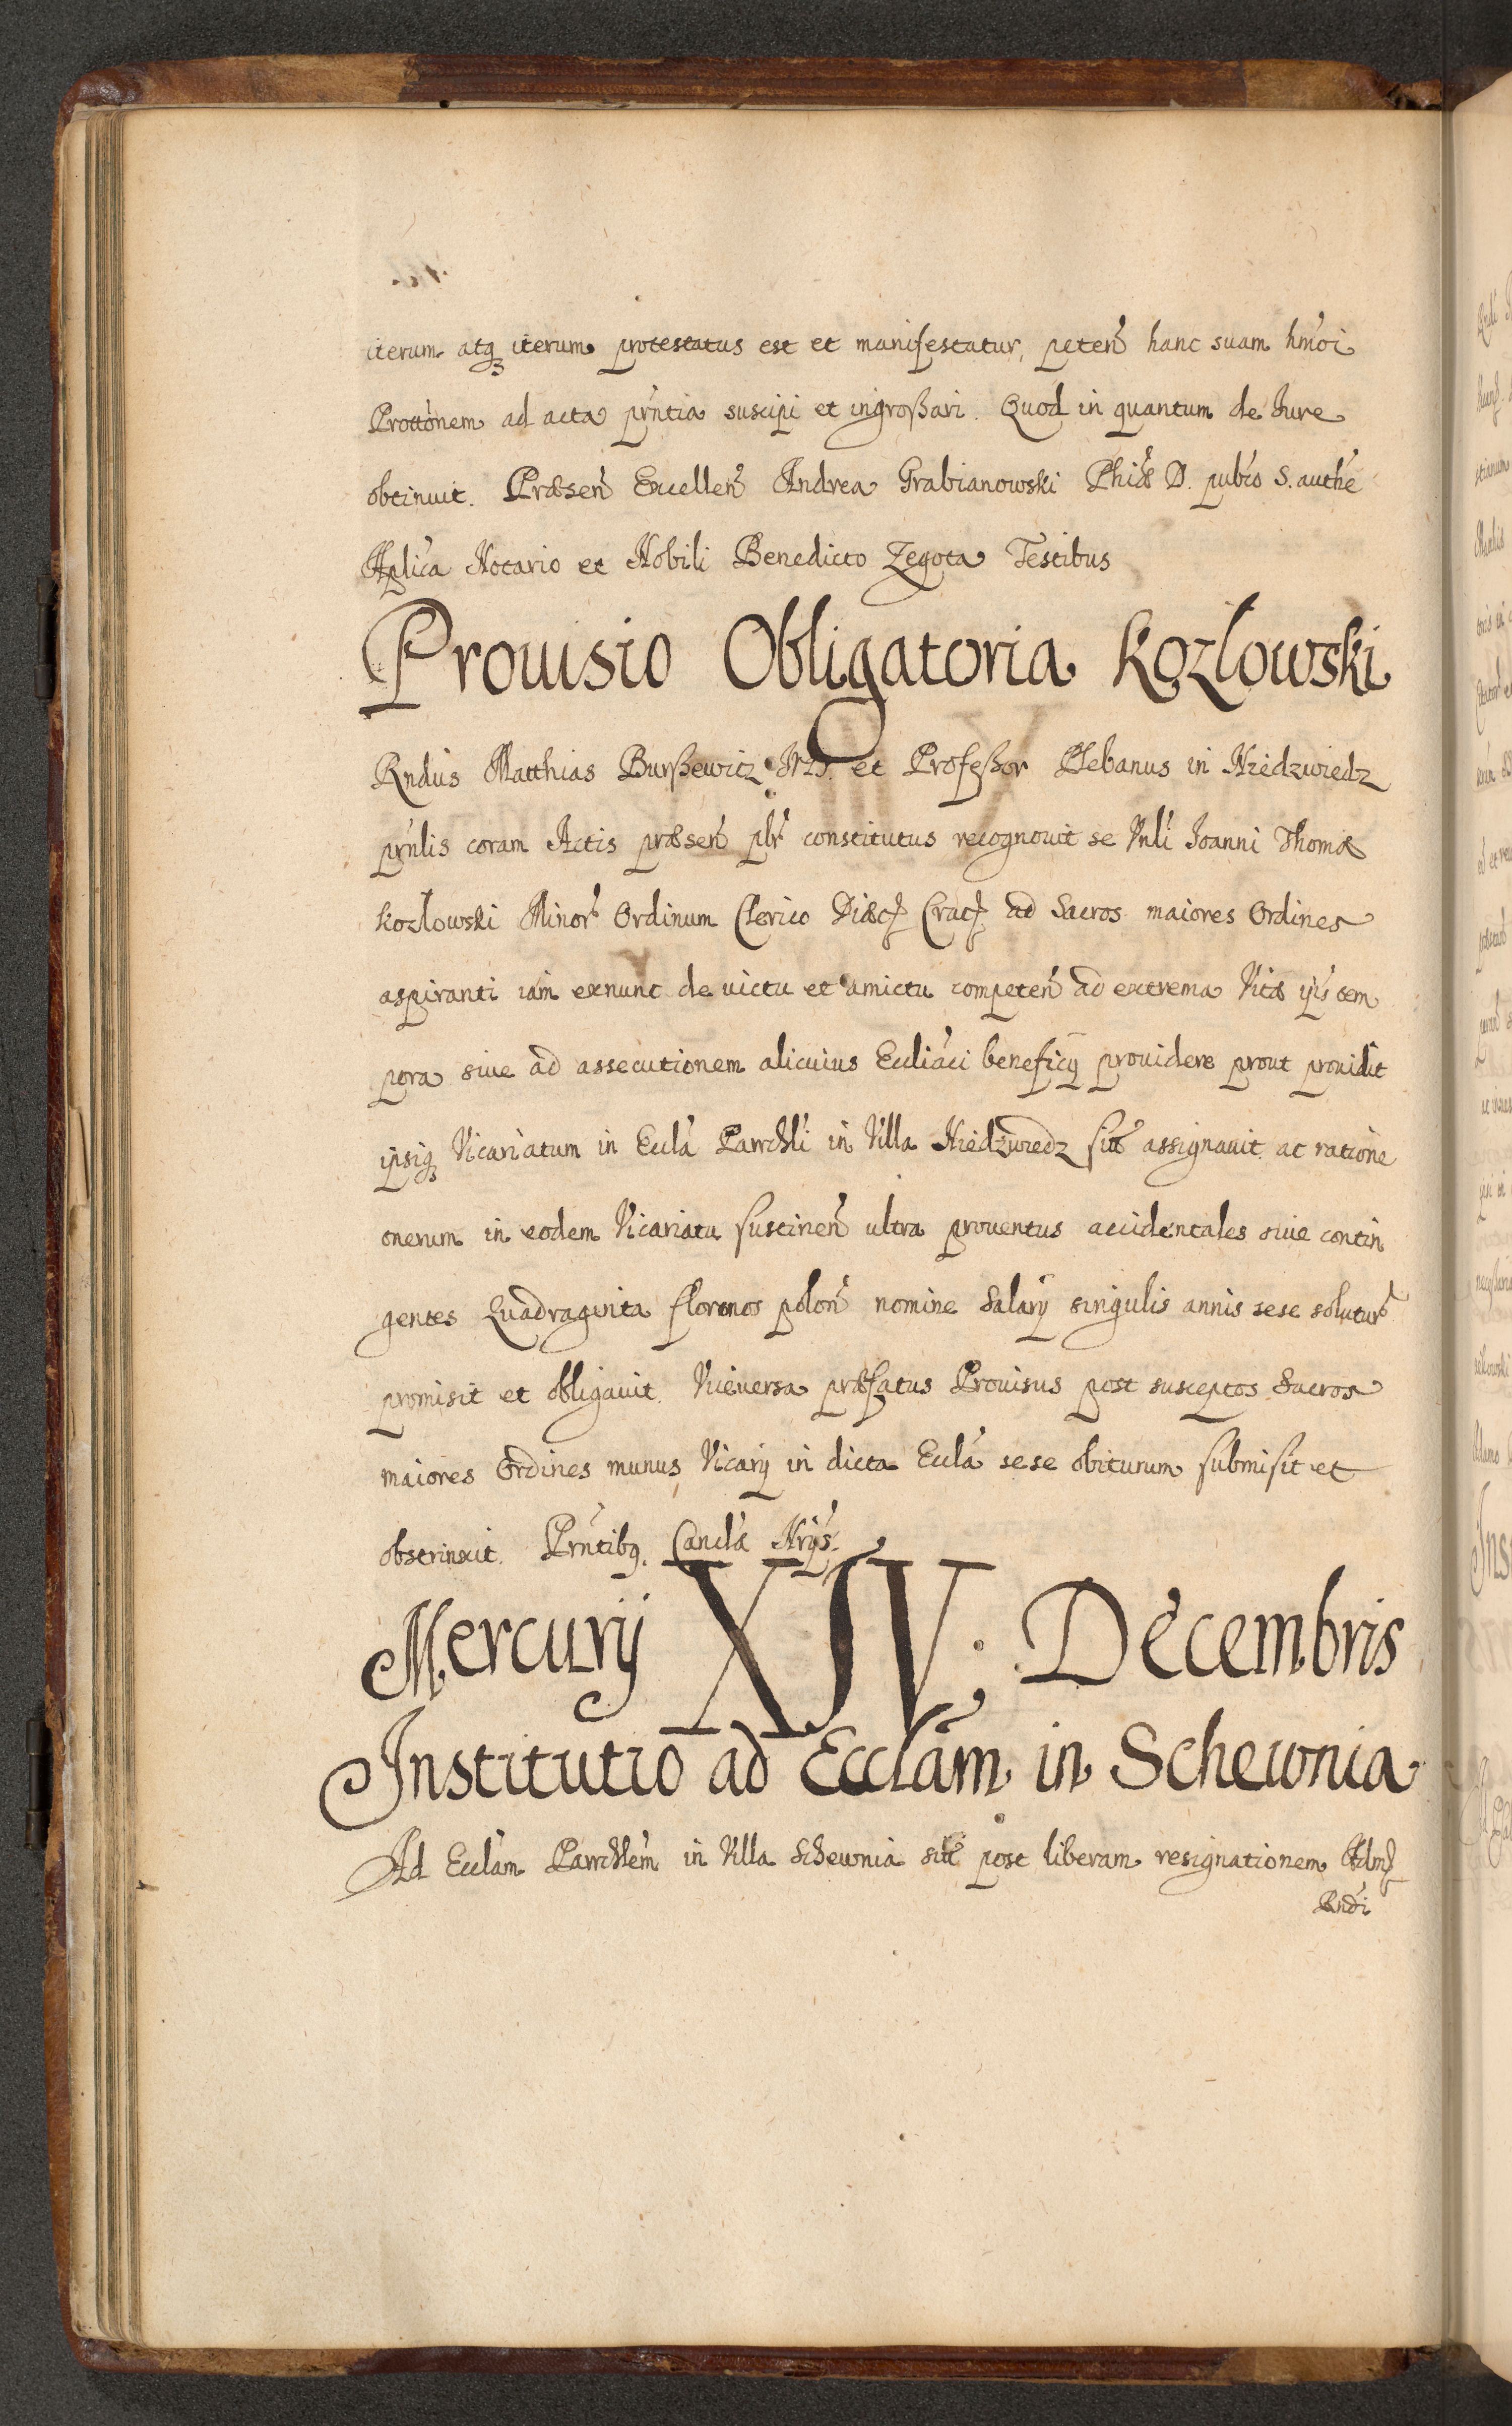 iterum atq; iterum protestatus est et manifestatur, peteñ hanc suam hm̃oi
Prottõnem ad acta pñntia suscipi et ingroßari. Quod in quantum de Jure
obtinuit. Præseñ Excelleñ Andrea Grabianowski Phiæ D. pubᷓco S. authẽ
Aplĩca Notario et Nobili Benedicto Zegota Testibus
Prouisio Obligatoria Kozlowski
Rndus Matthias Burßewicz et Profeßor Plebanus in Niedzwiedz
pñnlis coram Actis præseñ pĺr constitutus recognouit se Vnli Joanni Thomæ
Kozlowski Minor Ordinum Clerico Diæc Crac ad Sacros maiores Ordines
aspiranti iam exnunc de victu et amictu competeñ ad extrema Vitæ ipĩs tem
pora siue ad assecutionem alicuius Eccliãci beneficij prouidere prout prouidit
ipsiq; Vicariatum in Ecclã Parrchli in Villa Niedzwiedz sitæ assignauit ac ratione
onerum in eodem Vicariatu sustineñ ultra prouentus accidentales siue contin
gentes Quadraginta florenos poloñ nomine Salarij singulis annis sese solutur
promisit et obligauit. Viceuersa præfatus Prouisus post susceptos Sacros
maiores Ordines munus Vicarij in dicta Ecclã sese obiturum submisit et
obstrinxit. Prñtibq. Canclã Nrijs.
Mercurij XIV. Decembris
Institutio ad Ecclãm in Schewnia
Ad Ecclãm Parrchlem in Villa Schewnia sitã post liberam resignationem Adm
Rndi